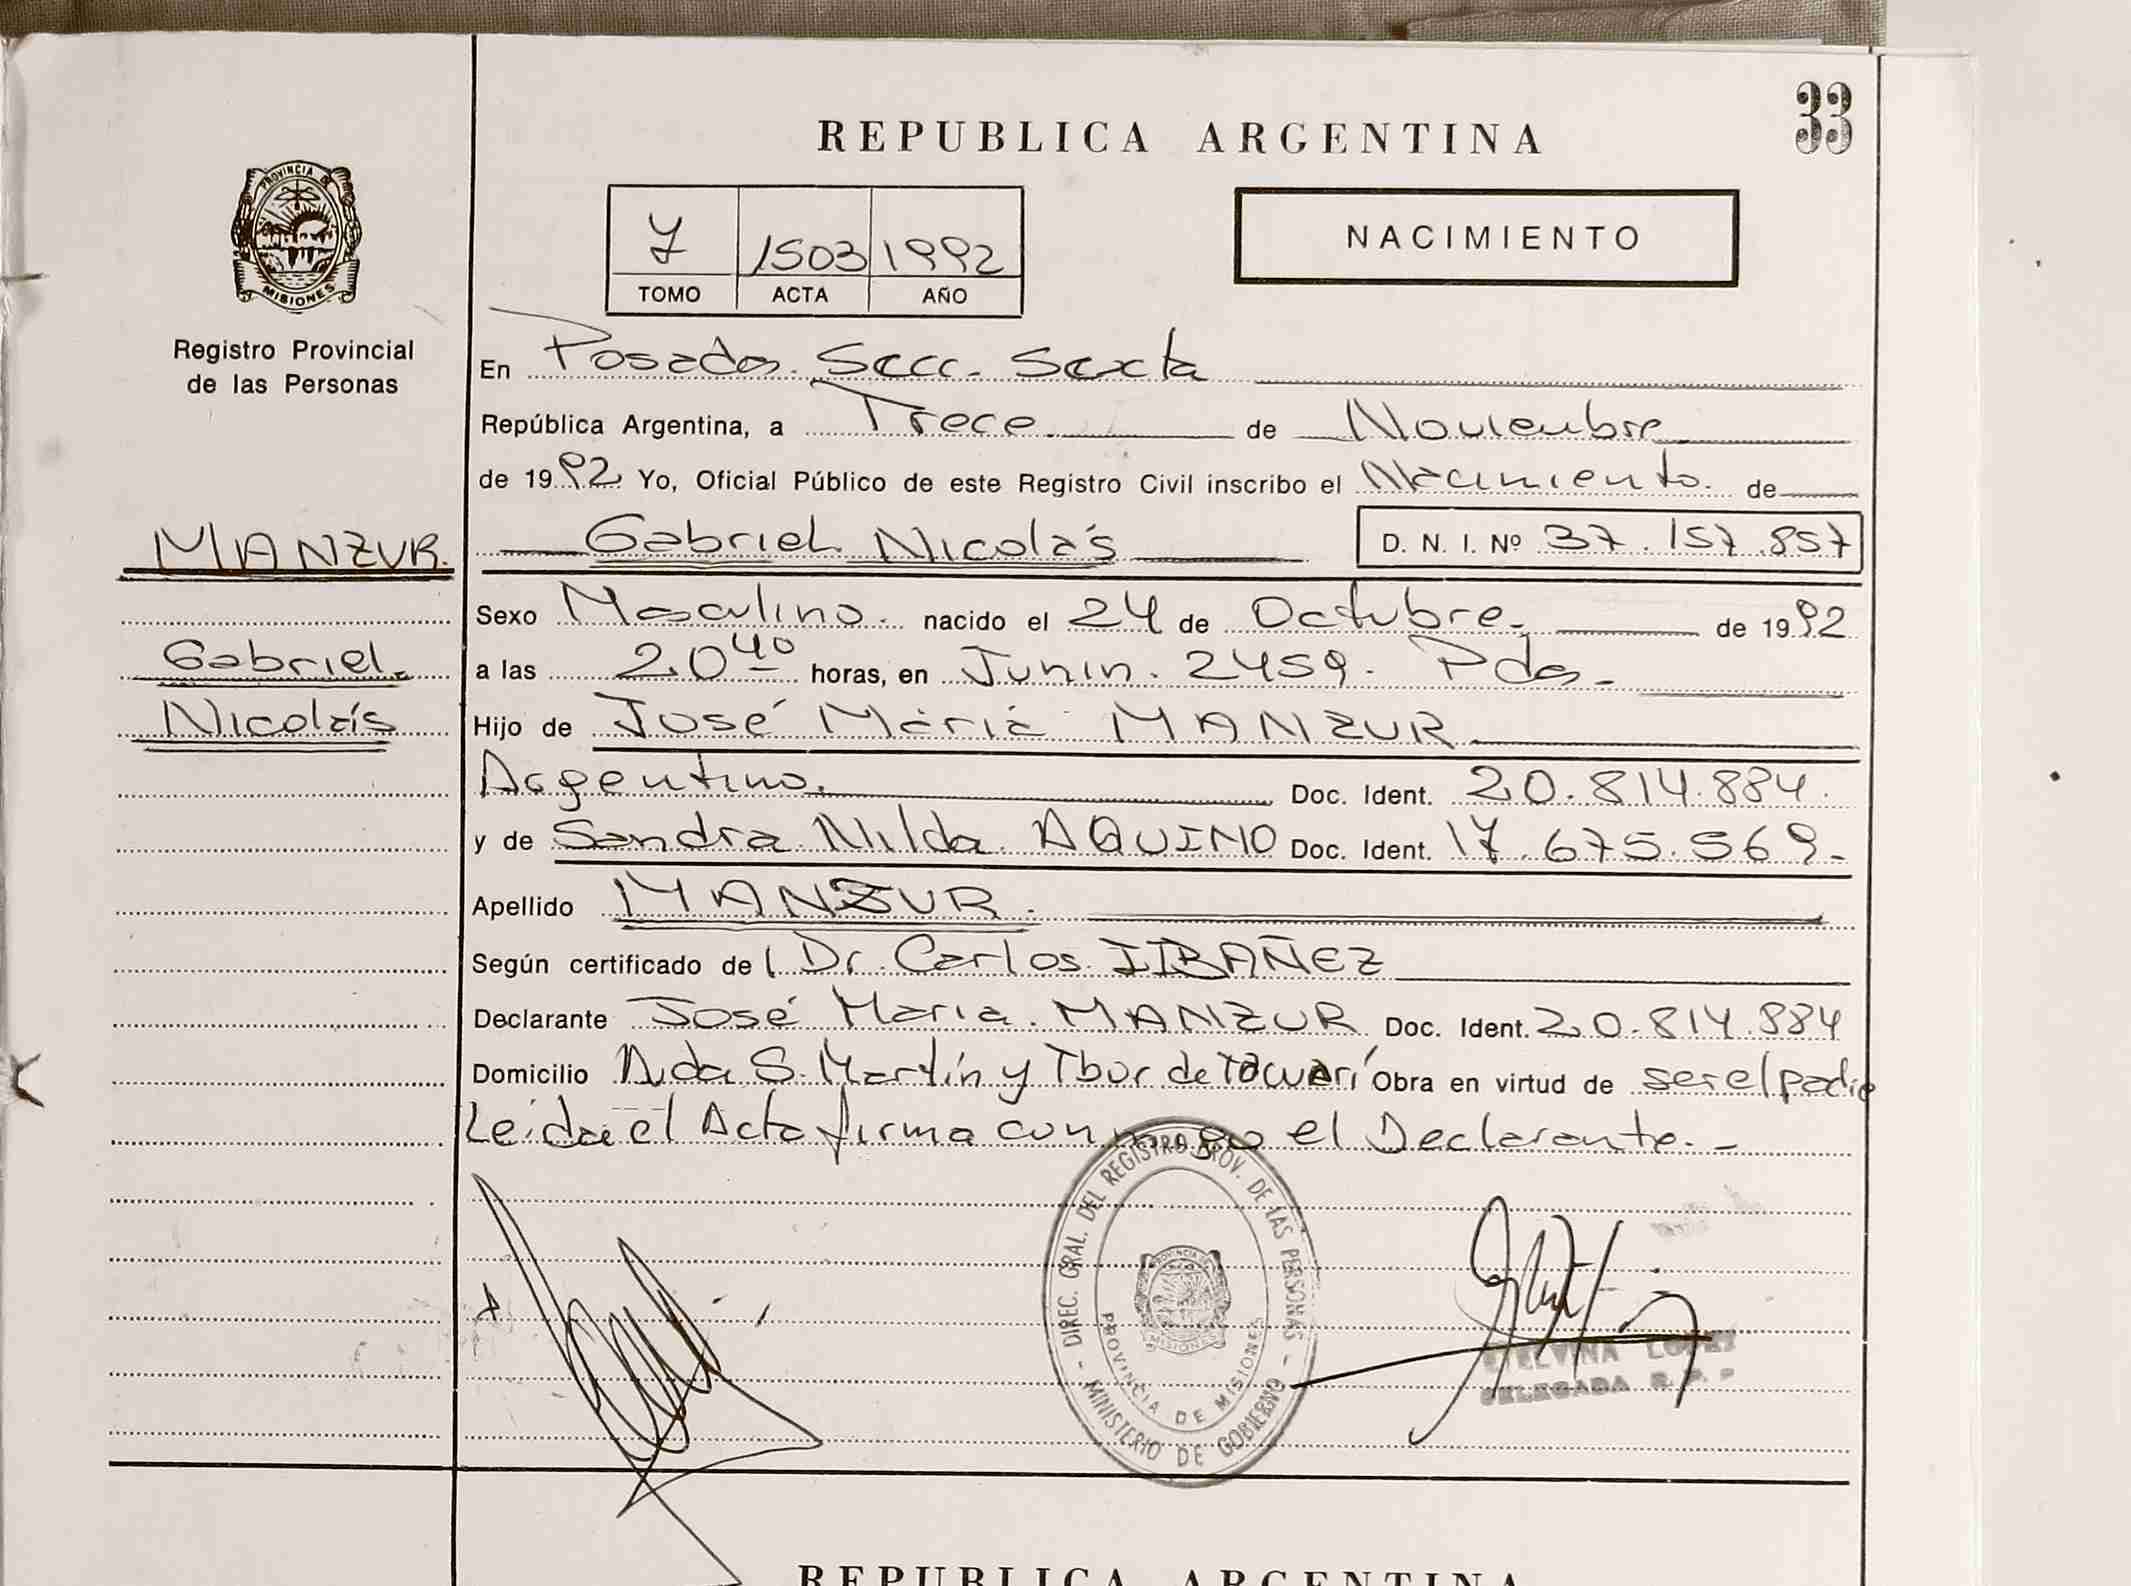 33
REPUBLICA ARGENTINA
PROVINCIA DE MISIONES
Registro Provincial
de las Personas
7 1503 1992
TOMO ACTA AÑO
NACIMIENTO
En Posadas. Secc. Sexta
República Argentina, a Trece de Noviembre
de 1992 Yo, Oficial Público de este Registro Civil inscribo el Nacimiento. de
MANZUR. Gabriel Nicolás D. N. I. Nº 37.157.857
Sexo Masculino. nacido el 24 de Octubre. de 1992
Gabriel. a las 20 40 horas, en Junin. 2459. Pdas.
Nicolás Hijo de José María MANZUR
Argentino. Doc. Ident. 20.814.884.
y de Sandra Nilda AQUINO Doc. Ident. 17.675.569.-
Apellido MANZUR.
Según certificado del Dr. Carlos IBAÑEZ
Declarante José María MANZUR Doc. Ident. 20.814.884
Domicilio Avda S. Martín y Tbor de Tacuarí Obra en virtud de ser el padre
Leída el Acta firma conmigo el Declarante.-
DIREC. GRAL. DEL REGISTRO PROV. DE LAS PERSONAS - MINISTERIO DE GOBIERNO -
PROVINCIA DE MISIONES
LOPEZ
DELEGADA R. P. P
REPUBLICA ARGENTINA